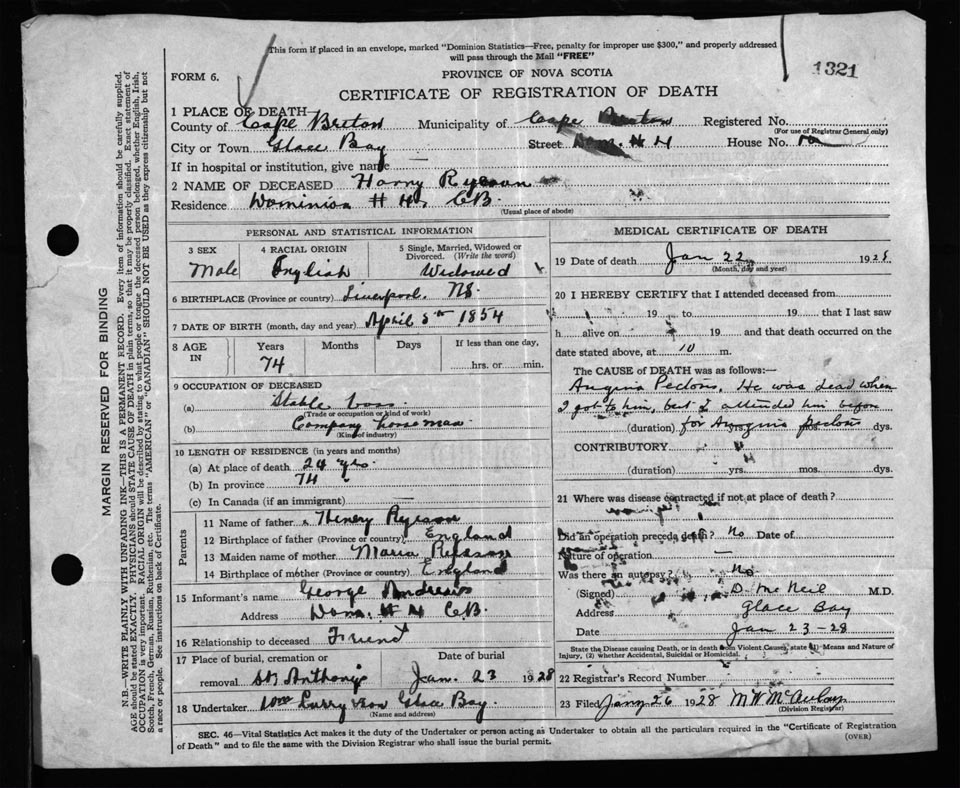 This form if placed in an envelope, marked "Dominion Statistics—Free, penalty for improper use $300," and properly addressed
will pass through the Mail "FREE"
FORM 6.
PROVINCE OF NOVA SCOTIA
1321
CERTIFICATE OF REGISTRATION OF DEATH
1 PLACE OF DEATH
County of Cape Breton Municipality of Cape Breton Registered No.
(For use of Registrar General only)
City or Town Glace Bay Street # 4 House No.
If in hospital or institution, give name —
2 NAME OF DECEASED Harry Ryerson
Residence Dominion # 4, C.B.
(Usual place of abode)
PERSONAL AND STATISTICAL INFORMATION
3 SEX 4 RACIAL ORIGIN 5 Single, Married, Widowed or
Divorced. (Write the word)
Male English Widowed
6 BIRTHPLACE (Province or country) Liverpool. NS.
7 DATE OF BIRTH (month, day and year) April 5th 1854
8 AGE IN Years Months Days If less than one day,
74 hrs. or min.
9 OCCUPATION OF DECEASED
(a) Stable boss
(Trade or occupation or kind of work)
(b) Company horseman
(Kind of industry)
10 LENGTH OF RESIDENCE (in years and months)
(a) At place of death 24 yrs.
(b) In province 74
(c) In Canada (if an immigrant) —
Parents
11 Name of father Henry Ryerson
12 Birthplace of father (Province or country) England
13 Maiden name of mother Maria
14 Birthplace of mother (Province or country) England
15 Informant's name George Andrews
Address Dom. # 4 C.B.
16 Relationship to deceased Friend
17 Place of burial, cremation or Date of burial
removal St Anthony's Jan. 23 1928
18 Undertaker Wm Curry & Son Glace Bay
(Name and address)
MEDICAL CERTIFICATE OF DEATH
19 Date of death Jan 22 1928
(Month, day and year)
20 I HEREBY CERTIFY that I attended deceased from
19 to 19 that I last saw
h alive on 19 and that death occurred on
date stated above, at 10 m.
The CAUSE of DEATH was as follows:—
Angina Pectoris. He was dead when
I got to him, but I attended him before
(duration) for Angina pectoris yrs. mos. dys.
CONTRIBUTORY
(duration) yrs. mos. dys.
21 Where was disease contracted if not at place of death?
Did an operation precede death? No Date of
Nature of operation —
Was there an autopsy? No
(Signed) D. McNeil M.D.
Address Glace Bay
Date Jan 23-28
State the Disease causing Death, or in death from Violent Causes, state (1) Means and Nature of
Injury, (2) whether Accidental, Suicidal or Homicidal.
22 Registrar's Record Number
23 Filed Jany 26 1928
(Division Registrar)
SEC. 46—Vital Statistics Act makes it the duty of the Undertaker or person acting as Undertaker to obtain all the particulars required in the "Certificate of Registration
of Death" and to file the same with the Division Registrar who shall issue the burial permit.
(OVER)
MARGIN RESERVED FOR BINDING
N.B.—WRITE PLAINLY WITH UNFADING INK—THIS IS A PERMANENT RECORD. Every item of information should be carefully supplied.
AGE should be stated EXACTLY. PHYSICIANS should STATE CAUSE OF DEATH in plain terms, so that it may be properly classified. Exact statement of
OCCUPATION is very important. RACIAL ORIGIN will be described by stating to what people or tongue the deceased person belonged, whether English, Irish,
Scotch, French, German, Russian, Ruthenian, etc. The terms "AMERICAN" or "CANADIAN" SHOULD NOT BE USED as they express citizenship but not
a race or people. See instructions on back of Certificate.